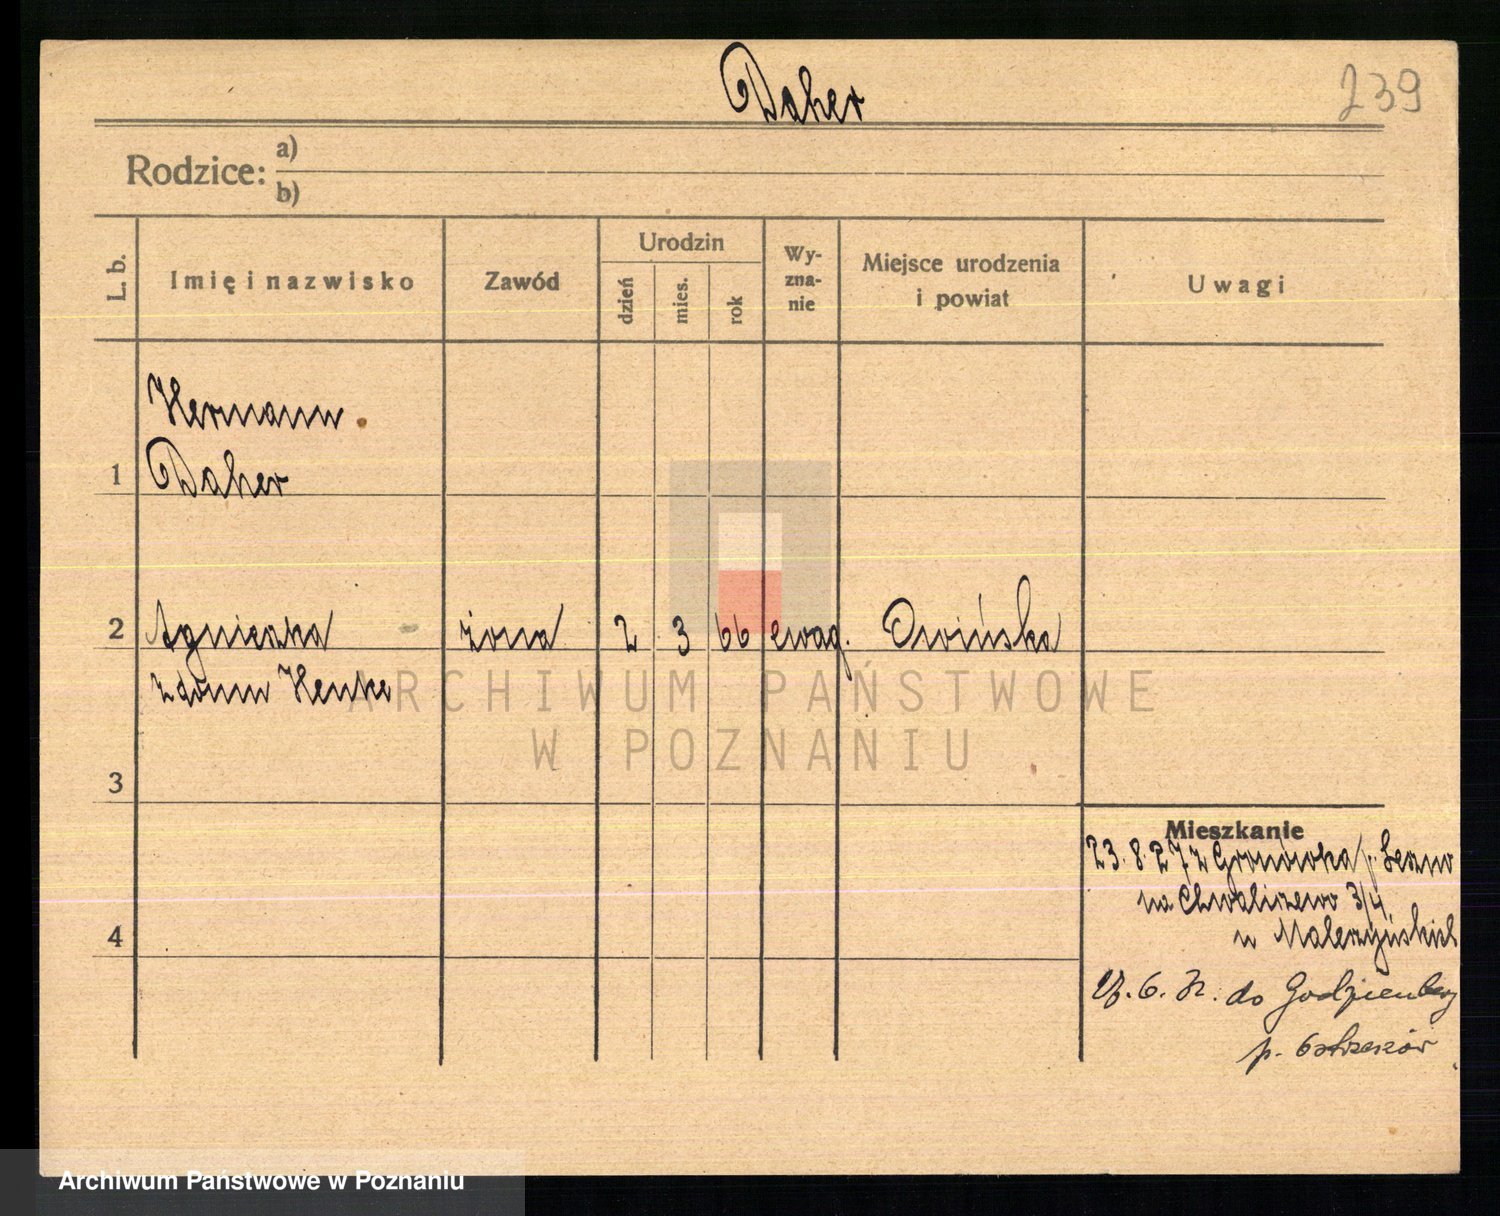 Daher
239
Rodzice: a)
b)
L. b.
Imię i nazwisko
Zawód
Urodzin
dzień
mies.
rok
Wy-
zna-
nie
Miejsce urodzenia
i powiat
Uwagi
Hermann
1 Daher
2 Agnieszka żona 2 3 66 ewag. Owińska
z domu Henke
3
4
Mieszkanie
23.8.27 z Gronówka p. Leszno
na Chwaliszewo 3/4
u
do
p.
ARCHIWUM PAŃSTWOWE
W POZNANIU
Archiwum Państwowe w Poznaniu